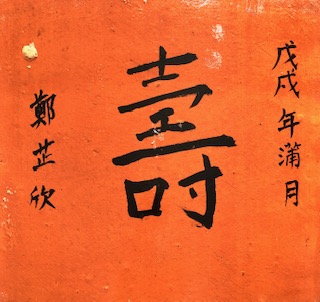 戊戌年蒲月
壽
鄭芷欣